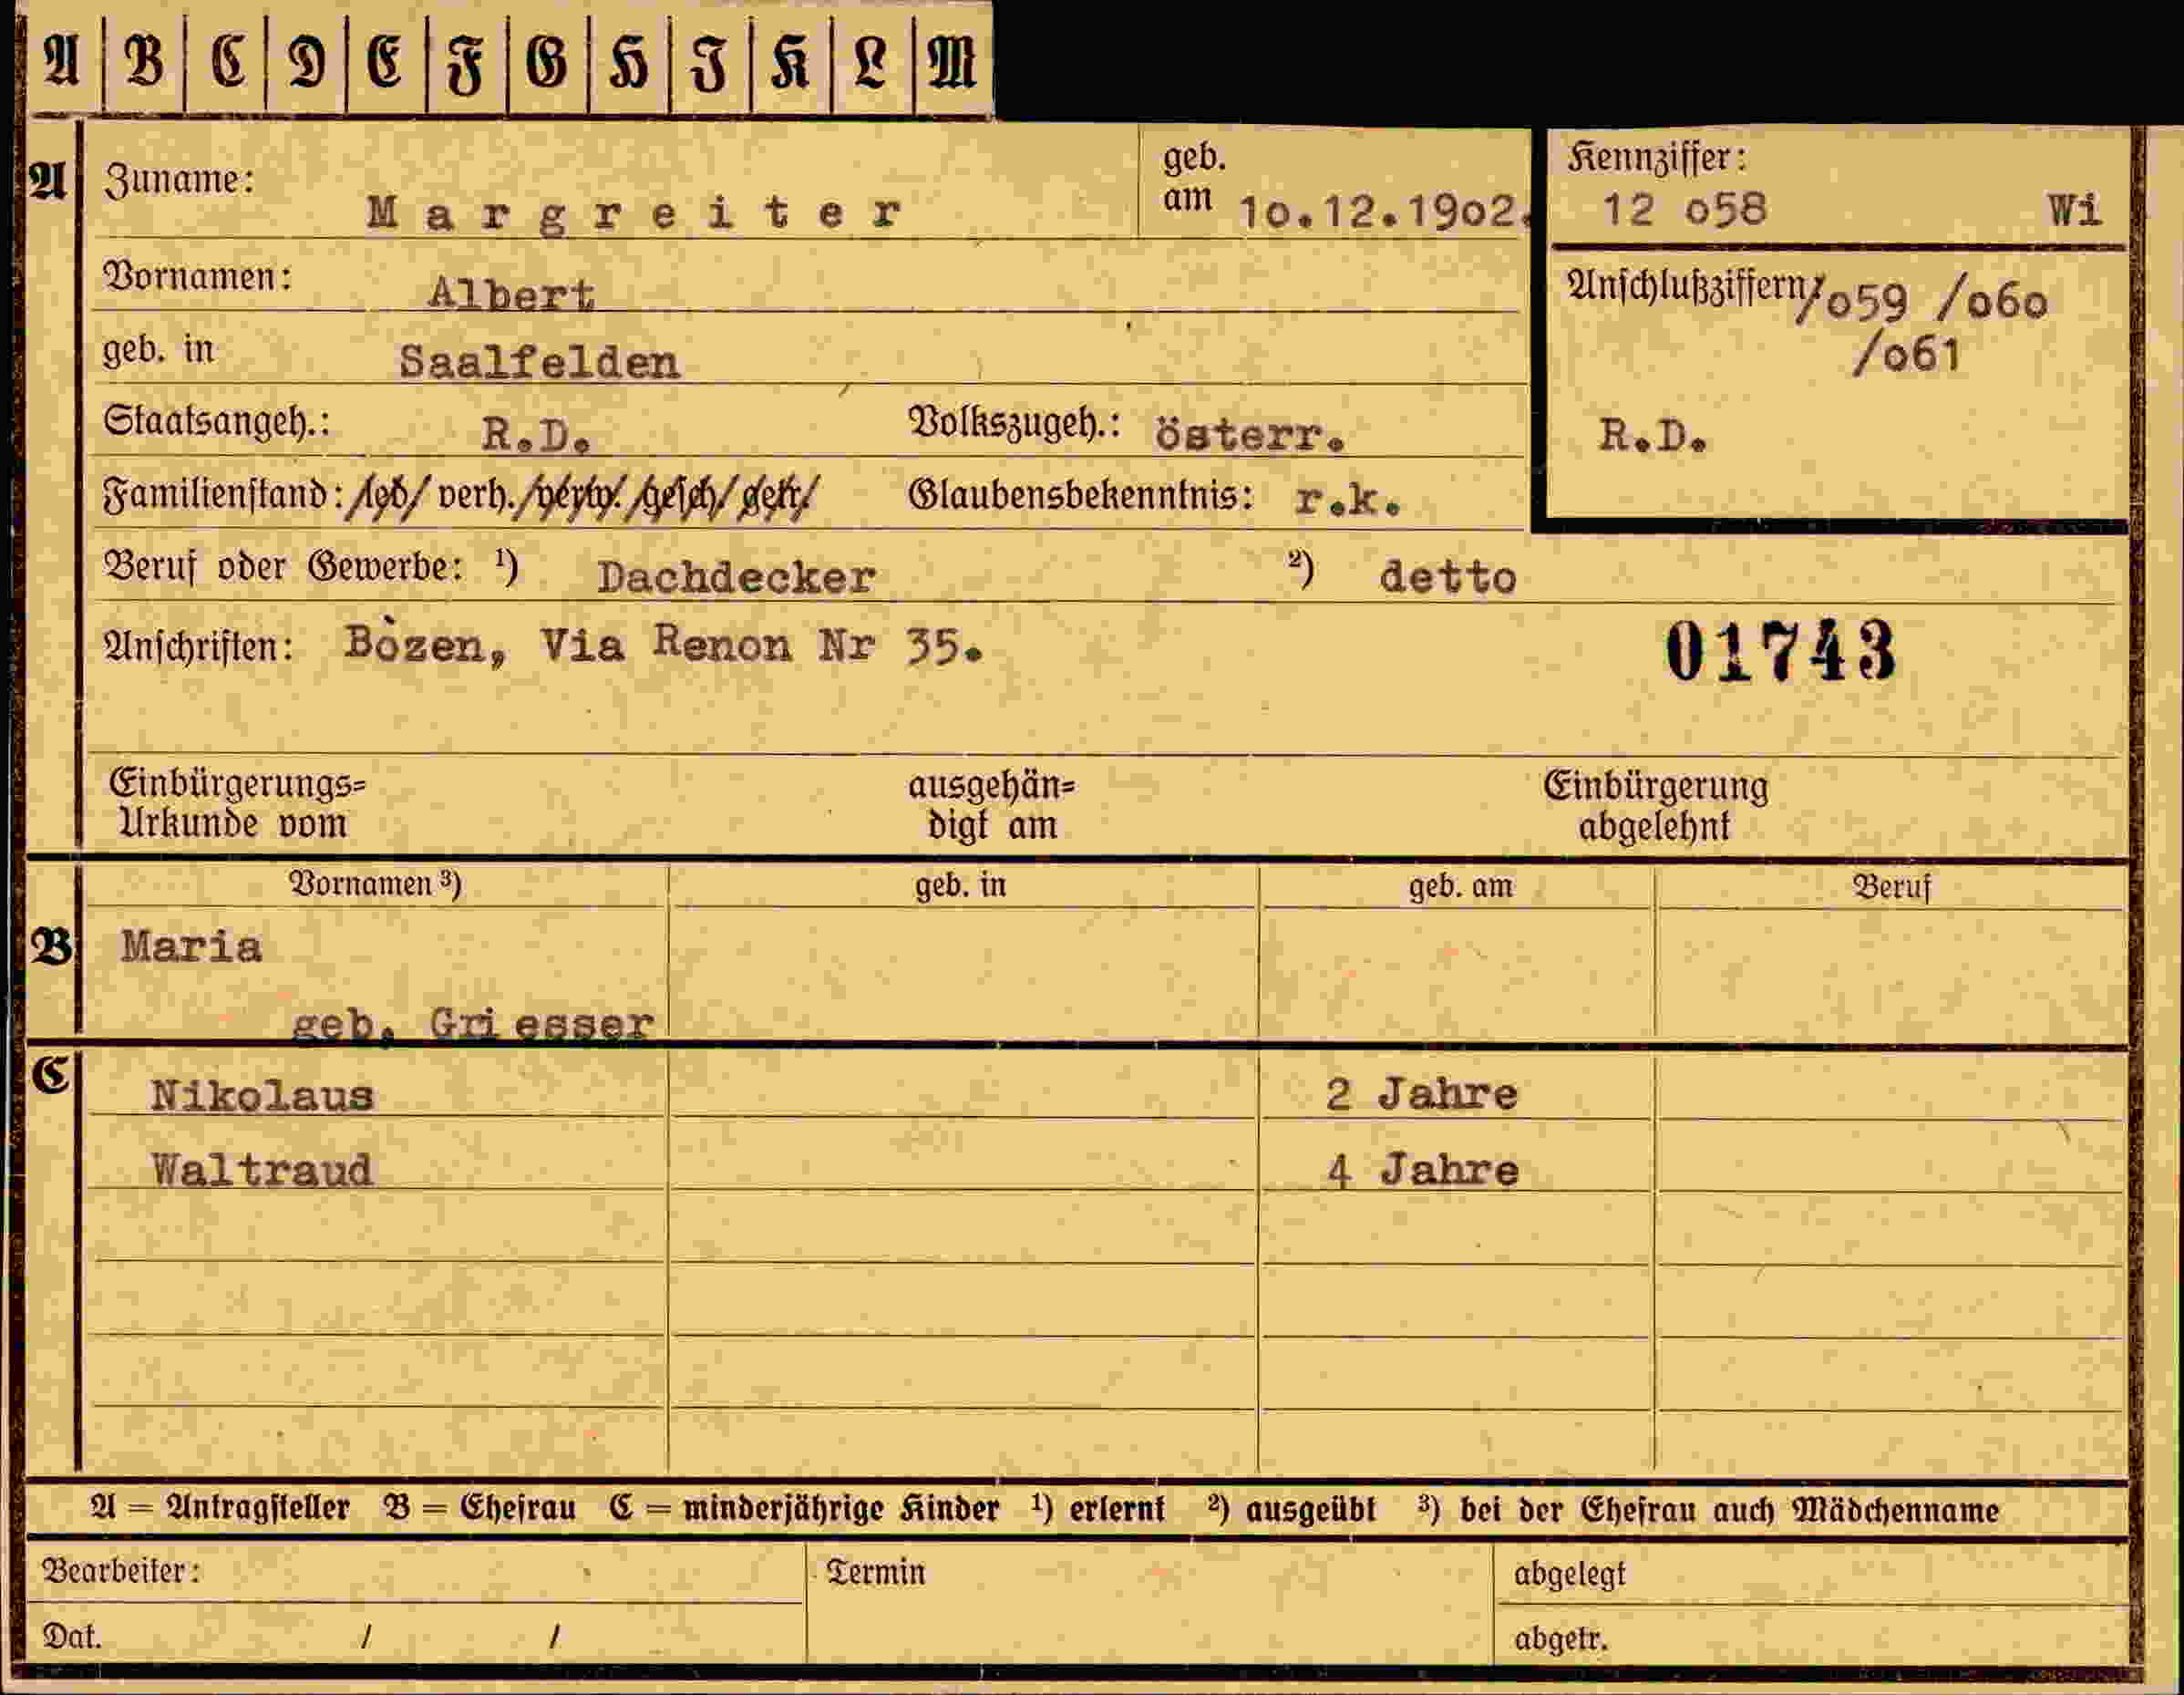 A B C D E F G H I K L M
A Zuname: Margreiter geb. am 1o.12.19o2.
Kennziffer: 12 o58 Wi
Vornamen: Albert
Anschlußziffern /o59 /o6o
/o61
geb. in Saalfelden
Staatsangeh.: R.D. Volkszugeh.: österr.
R.D.
Familienstand: led. verh. verw. gesch. getr. Glaubensbekenntnis: r.k.
Beruf oder Gewerbe: ¹) Dachdecker ²) detto
Anschriften: Bozen, Via Renon Nr 35.
01743
Einbürgerungs= ausgehän= Einbürgerung
Urkunde vom digt am abgelehnt
Vornamen ³) geb. in geb. am Beruf
B Maria
geb. Griesser
C Nikolaus 2 Jahre
Waltraud 4 Jahre
A = Antragsteller B = Ehefrau C = minderjährige Kinder ¹) erlernt ²) ausgeübt ³) bei der Ehefrau auch Mädchenname
Bearbeiter: Termin abgelegt
Dat. / / abgetr.